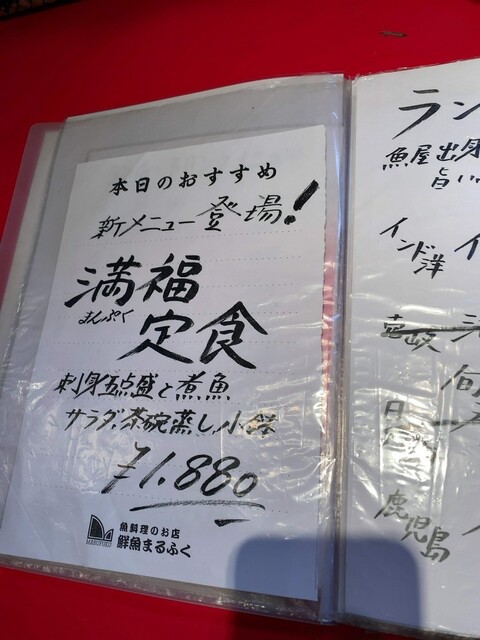 本日のおすすめ
新メニュー登場!
満福
まんぷく
定食
刺身五点盛と煮魚
サラダ、茶碗蒸し、小鉢
¥1.880
MARUFUKU
魚料理のお店
鮮魚まるふく
ラン
魚屋出身
旨い
インド洋
壱岐
旬
鹿児島